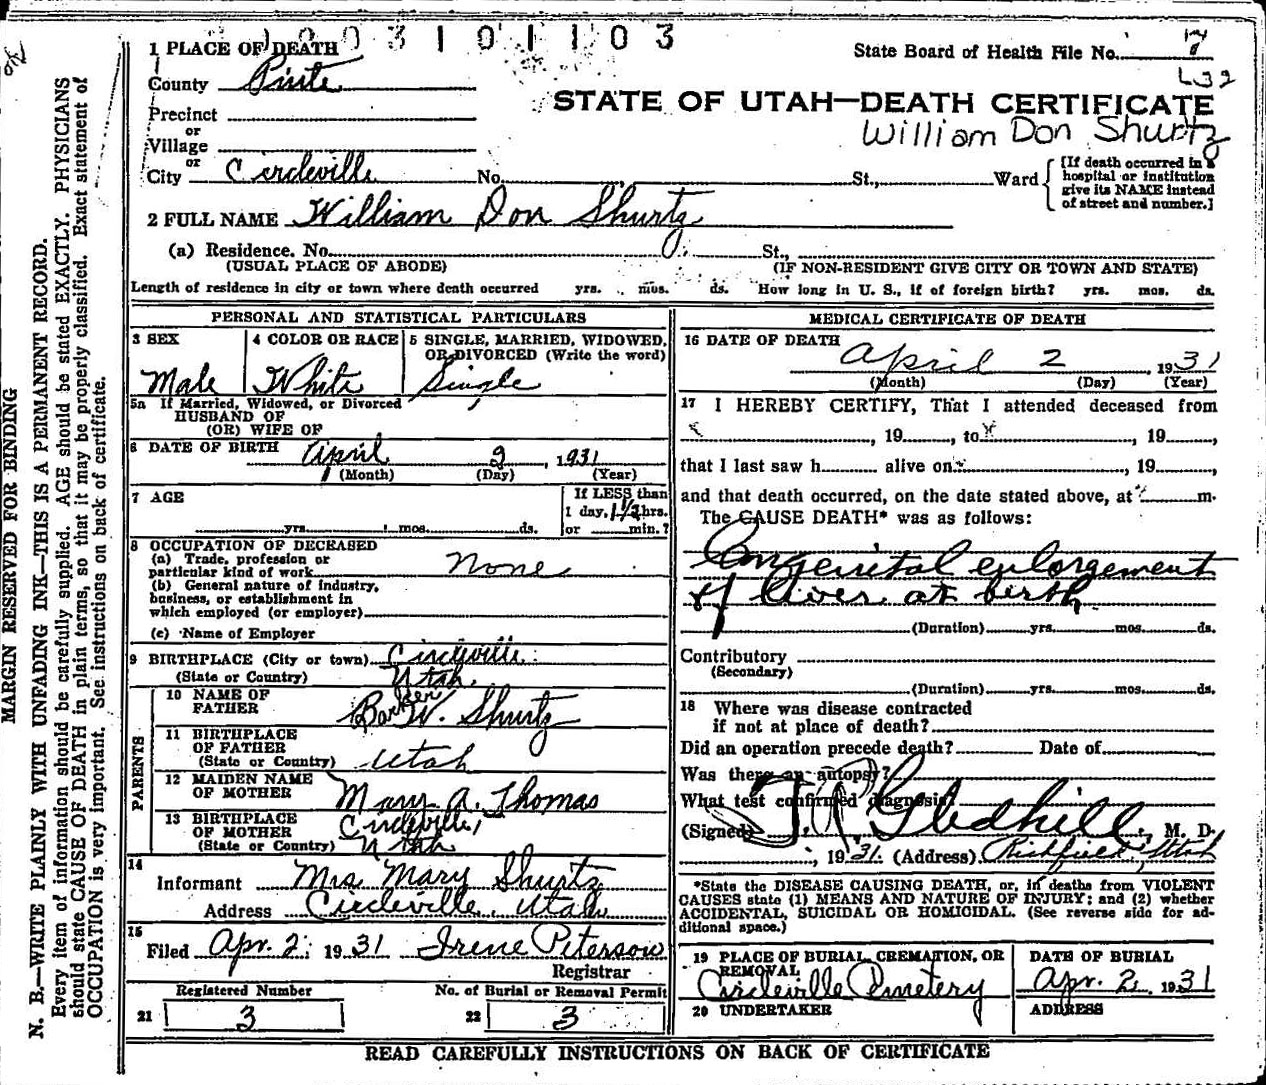 1003101103
1 PLACE OF DEATH
State Board of Health File No. 7
L32
County Piute
STATE OF UTAH—DEATH CERTIFICATE
William Don Shurtz
Precinct
or
Village
or
City Circleville No. St., Ward
[If death occurred in a
hospital or institution
give its NAME instead
of street and number.]
2 FULL NAME William Don Shurtz
(a) Residence. No. St.,
(USUAL PLACE OF ABODE) (IF NON-RESIDENT GIVE CITY OR TOWN AND STATE)
Length of residence in city or town where death occurred yrs. mos. ds. How long in U. S., if of foreign birth? yrs. mos. ds.
PERSONAL AND STATISTICAL PARTICULARS
3 SEX
Male
4 COLOR OR RACE
White
5 SINGLE, MARRIED, WIDOWED,
OR DIVORCED (Write the word)
Single
5a If Married, Widowed, or Divorced
HUSBAND OF
(OR) WIFE OF
6 DATE OF BIRTH April 2, 1931
(Month) (Day) (Year)
7 AGE
yrs. mos. ds.
If LESS than
1 day, 1 1/2 hrs.
or min.?
8 OCCUPATION OF DECEASED
(a) Trade, profession or
particular kind of work None
(b) General nature of industry,
business, or establishment in
which employed (or employer)
(c) Name of Employer
9 BIRTHPLACE (City or town) Circleville
(State or Country) Utah
PARENTS
10 NAME OF
FATHER Barker W. Shurtz
11 BIRTHPLACE
OF FATHER
(State or Country) Utah
12 MAIDEN NAME
OF MOTHER Mary A. Thomas
13 BIRTHPLACE
OF MOTHER Circleville,
(State or Country) Utah
14
Informant Mrs Mary Shurtz
Address Circleville, Utah
15
Filed Apr. 2, 1931 Irene Peterson
Registrar
Registered Number
21 3
No. of Burial or Removal Permit
22 3
MEDICAL CERTIFICATE OF DEATH
16 DATE OF DEATH
April 2, 1931
(Month) (Day) (Year)
17 I HEREBY CERTIFY, That I attended deceased from
, 19, to , 19,
that I last saw h alive on , 19,
and that death occurred, on the date stated above, at m.
The CAUSE DEATH* was as follows:
Congenital enlargement
of liver at birth
(Duration) yrs. mos. ds.
Contributory
(Secondary)
(Duration) yrs. mos. ds.
18 Where was disease contracted
if not at place of death?
Did an operation precede death? Date of
Was there an autopsy?
What test confirmed diagnosis?
(Signed) Gledhill, M. D.
, 1931. (Address) Richfield, Utah
*State the DISEASE CAUSING DEATH, or, in deaths from VIOLENT
CAUSES state (1) MEANS AND NATURE OF INJURY; and (2) whether
ACCIDENTAL, SUICIDAL OR HOMICIDAL. (See reverse side for ad-
ditional space.)
19 PLACE OF BURIAL, CREMATION, OR
REMOVAL
Circleville Cemetery
DATE OF BURIAL
Apr. 2, 1931
20 UNDERTAKER
ADDRESS
READ CAREFULLY INSTRUCTIONS ON BACK OF CERTIFICATE
MARGIN RESERVED FOR BINDING
N. B.—WRITE PLAINLY WITH UNFADING INK—THIS IS A PERMANENT RECORD.
Every item of information should be carefully supplied. AGE should be stated EXACTLY. PHYSICIANS
should state CAUSE OF DEATH in plain terms, so that it may be properly classified. Exact statement of
OCCUPATION is very important. See instructions on back of certificate.